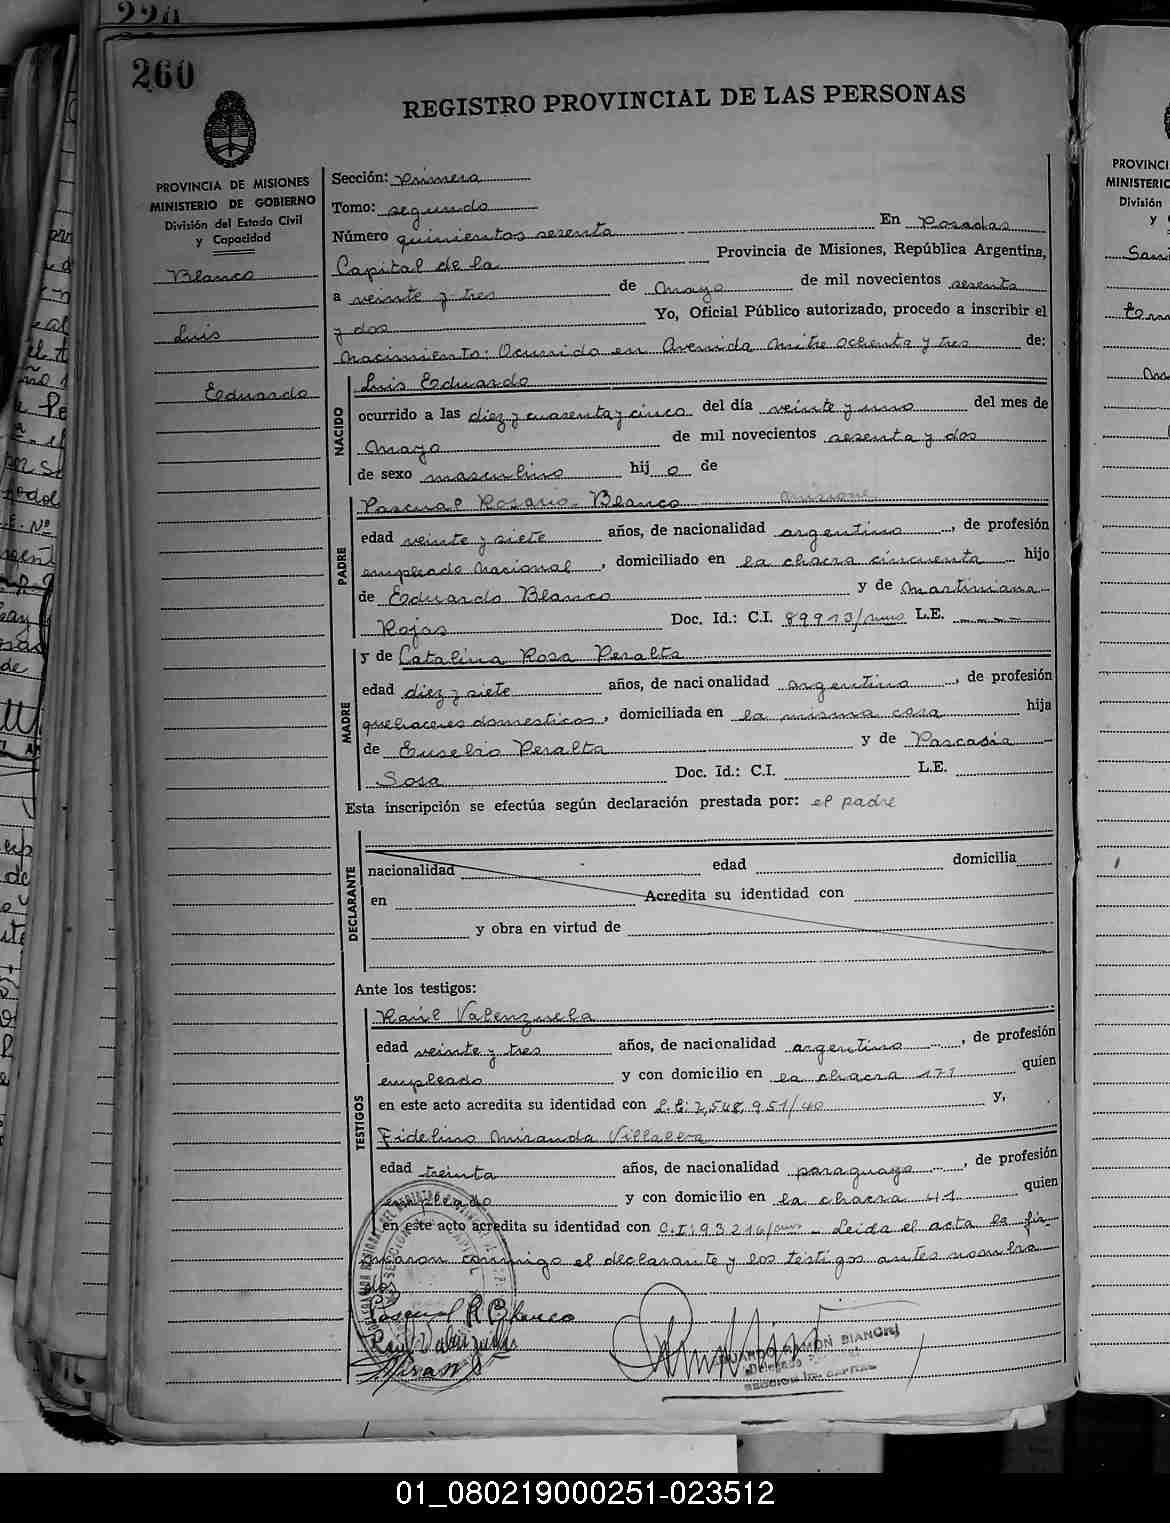 260
REGISTRO PROVINCIAL DE LAS PERSONAS
PROVINCIA DE MISIONES
MINISTERIO DE GOBIERNO
División del Estado Civil
y Capacidad
Blanco
Luis
Eduardo
Sección: Primera
Tomo: segundo
Número quinientos sesenta En Posadas
Capital de la Provincia de Misiones, República Argentina,
a veinte y tres de mayo de mil novecientos sesenta
y dos Yo, Oficial Público autorizado, procedo a inscribir el
nacimiento: Ocurrido en Avenida Mitre ochenta y tres de:
NACIDO
Luis Eduardo
ocurrido a las diez y cuarenta y cinco del día veinte y uno del mes de
mayo de mil novecientos sesenta y dos
de sexo masculino hij o de
PADRE
Pascual Rosario Blanco misione
edad veinte y siete años, de nacionalidad argentino, de profesión
empleado nacional, domiciliado en la chacra cincuenta hijo
de Eduardo Blanco y de Martiniana
Rojas Doc. Id.: C.I. 89913/ L.E.
MADRE
y de Catalina Rosa Peralta
edad diez y siete años, de nacionalidad argentina, de profesión
quehaceres domesticos, domiciliada en la misma casa hija
de Euselio Peralta y de Pascasia
Sosa Doc. Id.: C.I. L.E.
Esta inscripción se efectúa según declaración prestada por: el padre
DECLARANTE
nacionalidad edad domicilia
en Acredita su identidad con
y obra en virtud de
Ante los testigos:
TESTIGOS
Raúl Valenzuela
edad veinte y tres años, de nacionalidad argentino, de profesión
empleado y con domicilio en la chacra 171 quien
en este acto acredita su identidad con L.E: 7,548,951/40 y,
Fidelino Miranda Villalba
edad treinta años, de nacionalidad paraguayo, de profesión
empleado y con domicilio en la chacra 41 quien
en este acto acredita su identidad con C.I: 93216/ - Leida el acta la fir
maron conmigo el declarante y los testigos antes nombra
dos
Pascual R Blanco
Raul Valenzuela
Miranda
EDUARDO RAMÓN BIANCHI
SECCION 1ra. CAPITAL
PROVINCI
MINISTERIO
División
01_080219000251-023512